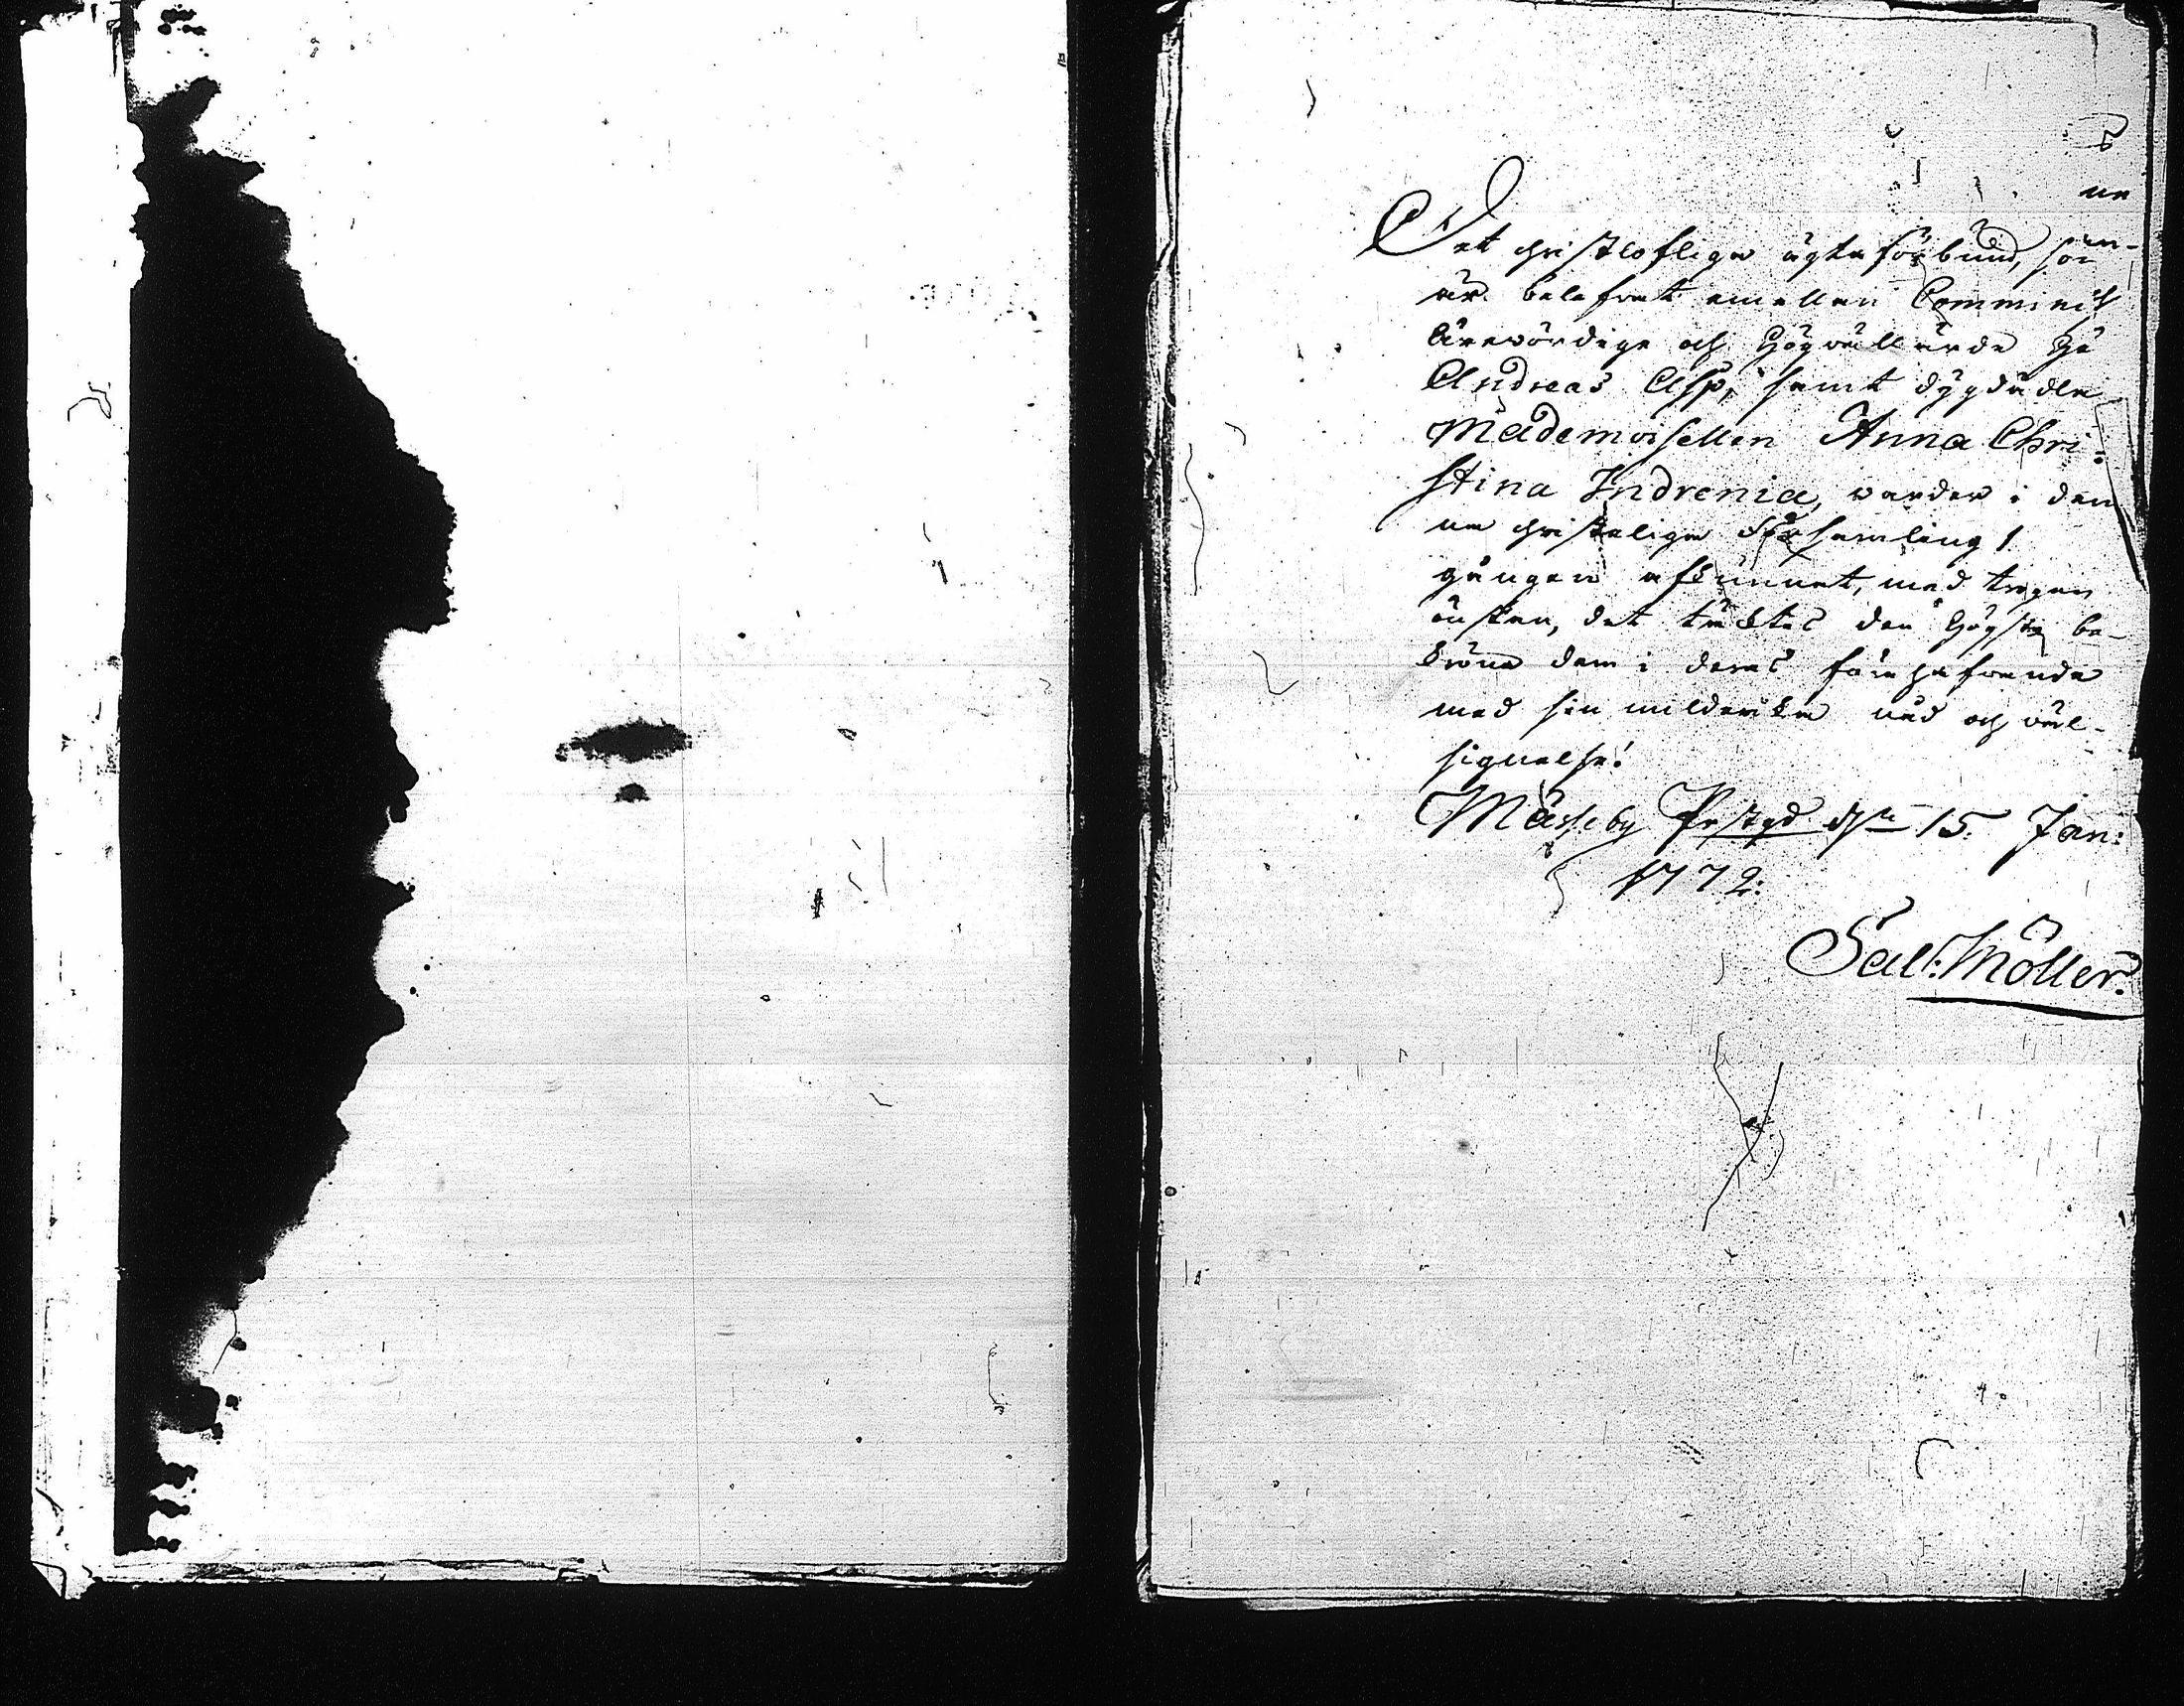 Det christlofliga ägtaförbund, som
är belefvat emellan Comminist
Ärewördige och Högwällärde He
Andreas Asp, samt dygdädla
Mademoisellen Anna Chri-
stina Indrenia, warder i den
na christeliga Församling 1
gången afkunnat, med trogen
önskan, det täcktes den Högste be-
kröna dem i deras förehafvande
med sin milderika nåd och väl-
signelse!
Mäseby Prstgd d 15. Jan:
1772:
Sal: Möller.